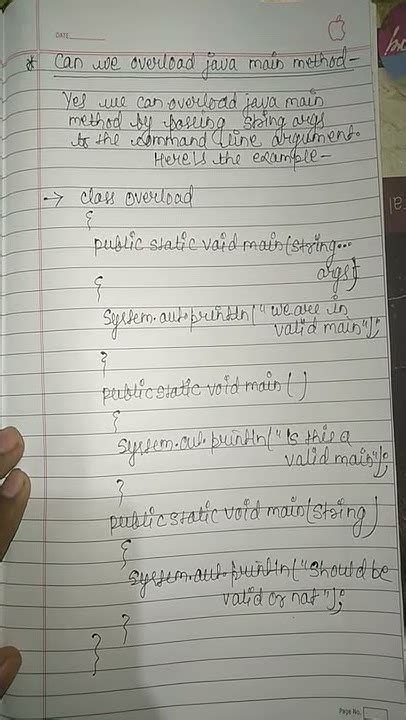 DATE
* Can we overload java main method-
Yes we can overload java main
method by passing string args
to the command line argument.
Here is the example-
→ class overload
{
public static void main(string...
args)
{
system.out.println("we are in
valid main");
}
public static void main()
{
system.out.println("Is this a
valid main");
}
public static void main(string)
{
system.out.println("should be
valid or not");
}
}
Page No.